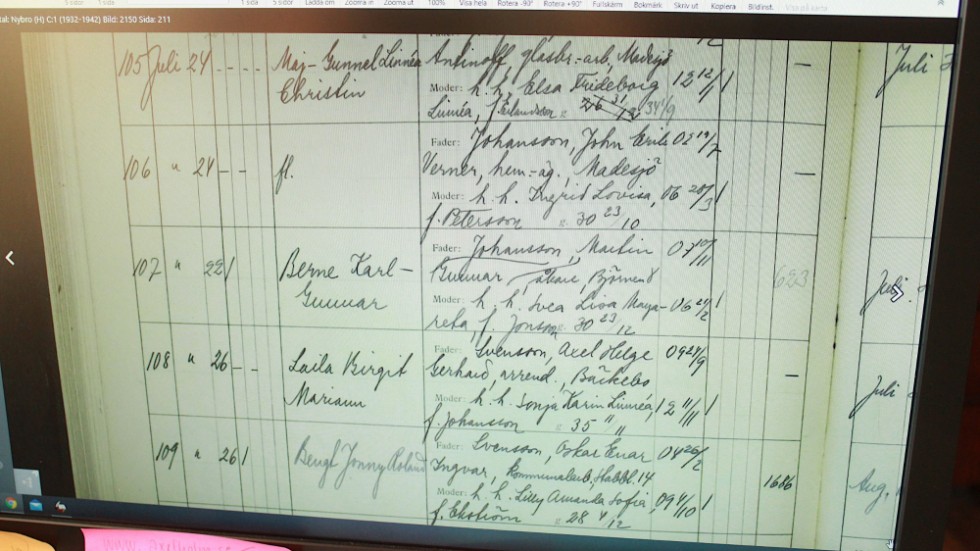 1 sida 5 sidor Ladda om Zooma in Zooma ut 100% Visa hela Rotera -90° Rotera +90° Fullskärm Bokmärk Skriv ut Kopiera Bildinst.
tal: Nybro (H) C:1 (1932-1942) Bild: 2150 Sida: 211
105 Juli 24 Maj-Gunnel Linnéa glasbr.-arb, Madesjö
Christin Moder: h. h. Elsa Frideborg 12 12/1 1 — Juli
Linnéa, f. Erlandsson 34 1/9
Fader: Johansson, John Erik 02 19/7
106 " 24 fl. Verner, hem.-äg., Madesjö —
Moder: h. h. Ingrid Lovisa, 06 20/3 1
f. Petersson 30 23/10
Fader: Johansson, Martin 07 10/11
107 " 22 1 Berne Karl- Gunnar 623 Juli
Gunnar Moder: h. h. Svea Lisa Marga- 06 24/2 1
reta, f. Jonsson 30 23/12
Fader: Svensson, Axel Helge 09 24/9
108 " 26 Laila Birgit Gerhard, arrend., Bäckebo —
Mariann Moder: h. h. Sonja Karin Linnéa, 12 11/11 1 Juli
f. Johansson 35 " "
Fader: Svensson, Oskar Einar 04 26/2
109 " 26 1 Bengt Jonny Roland Ingvar, 1686 Aug.
Moder: h. h. Lilly Amanda Sofia, 09 4/10 1
f. Ekström 28 4/12